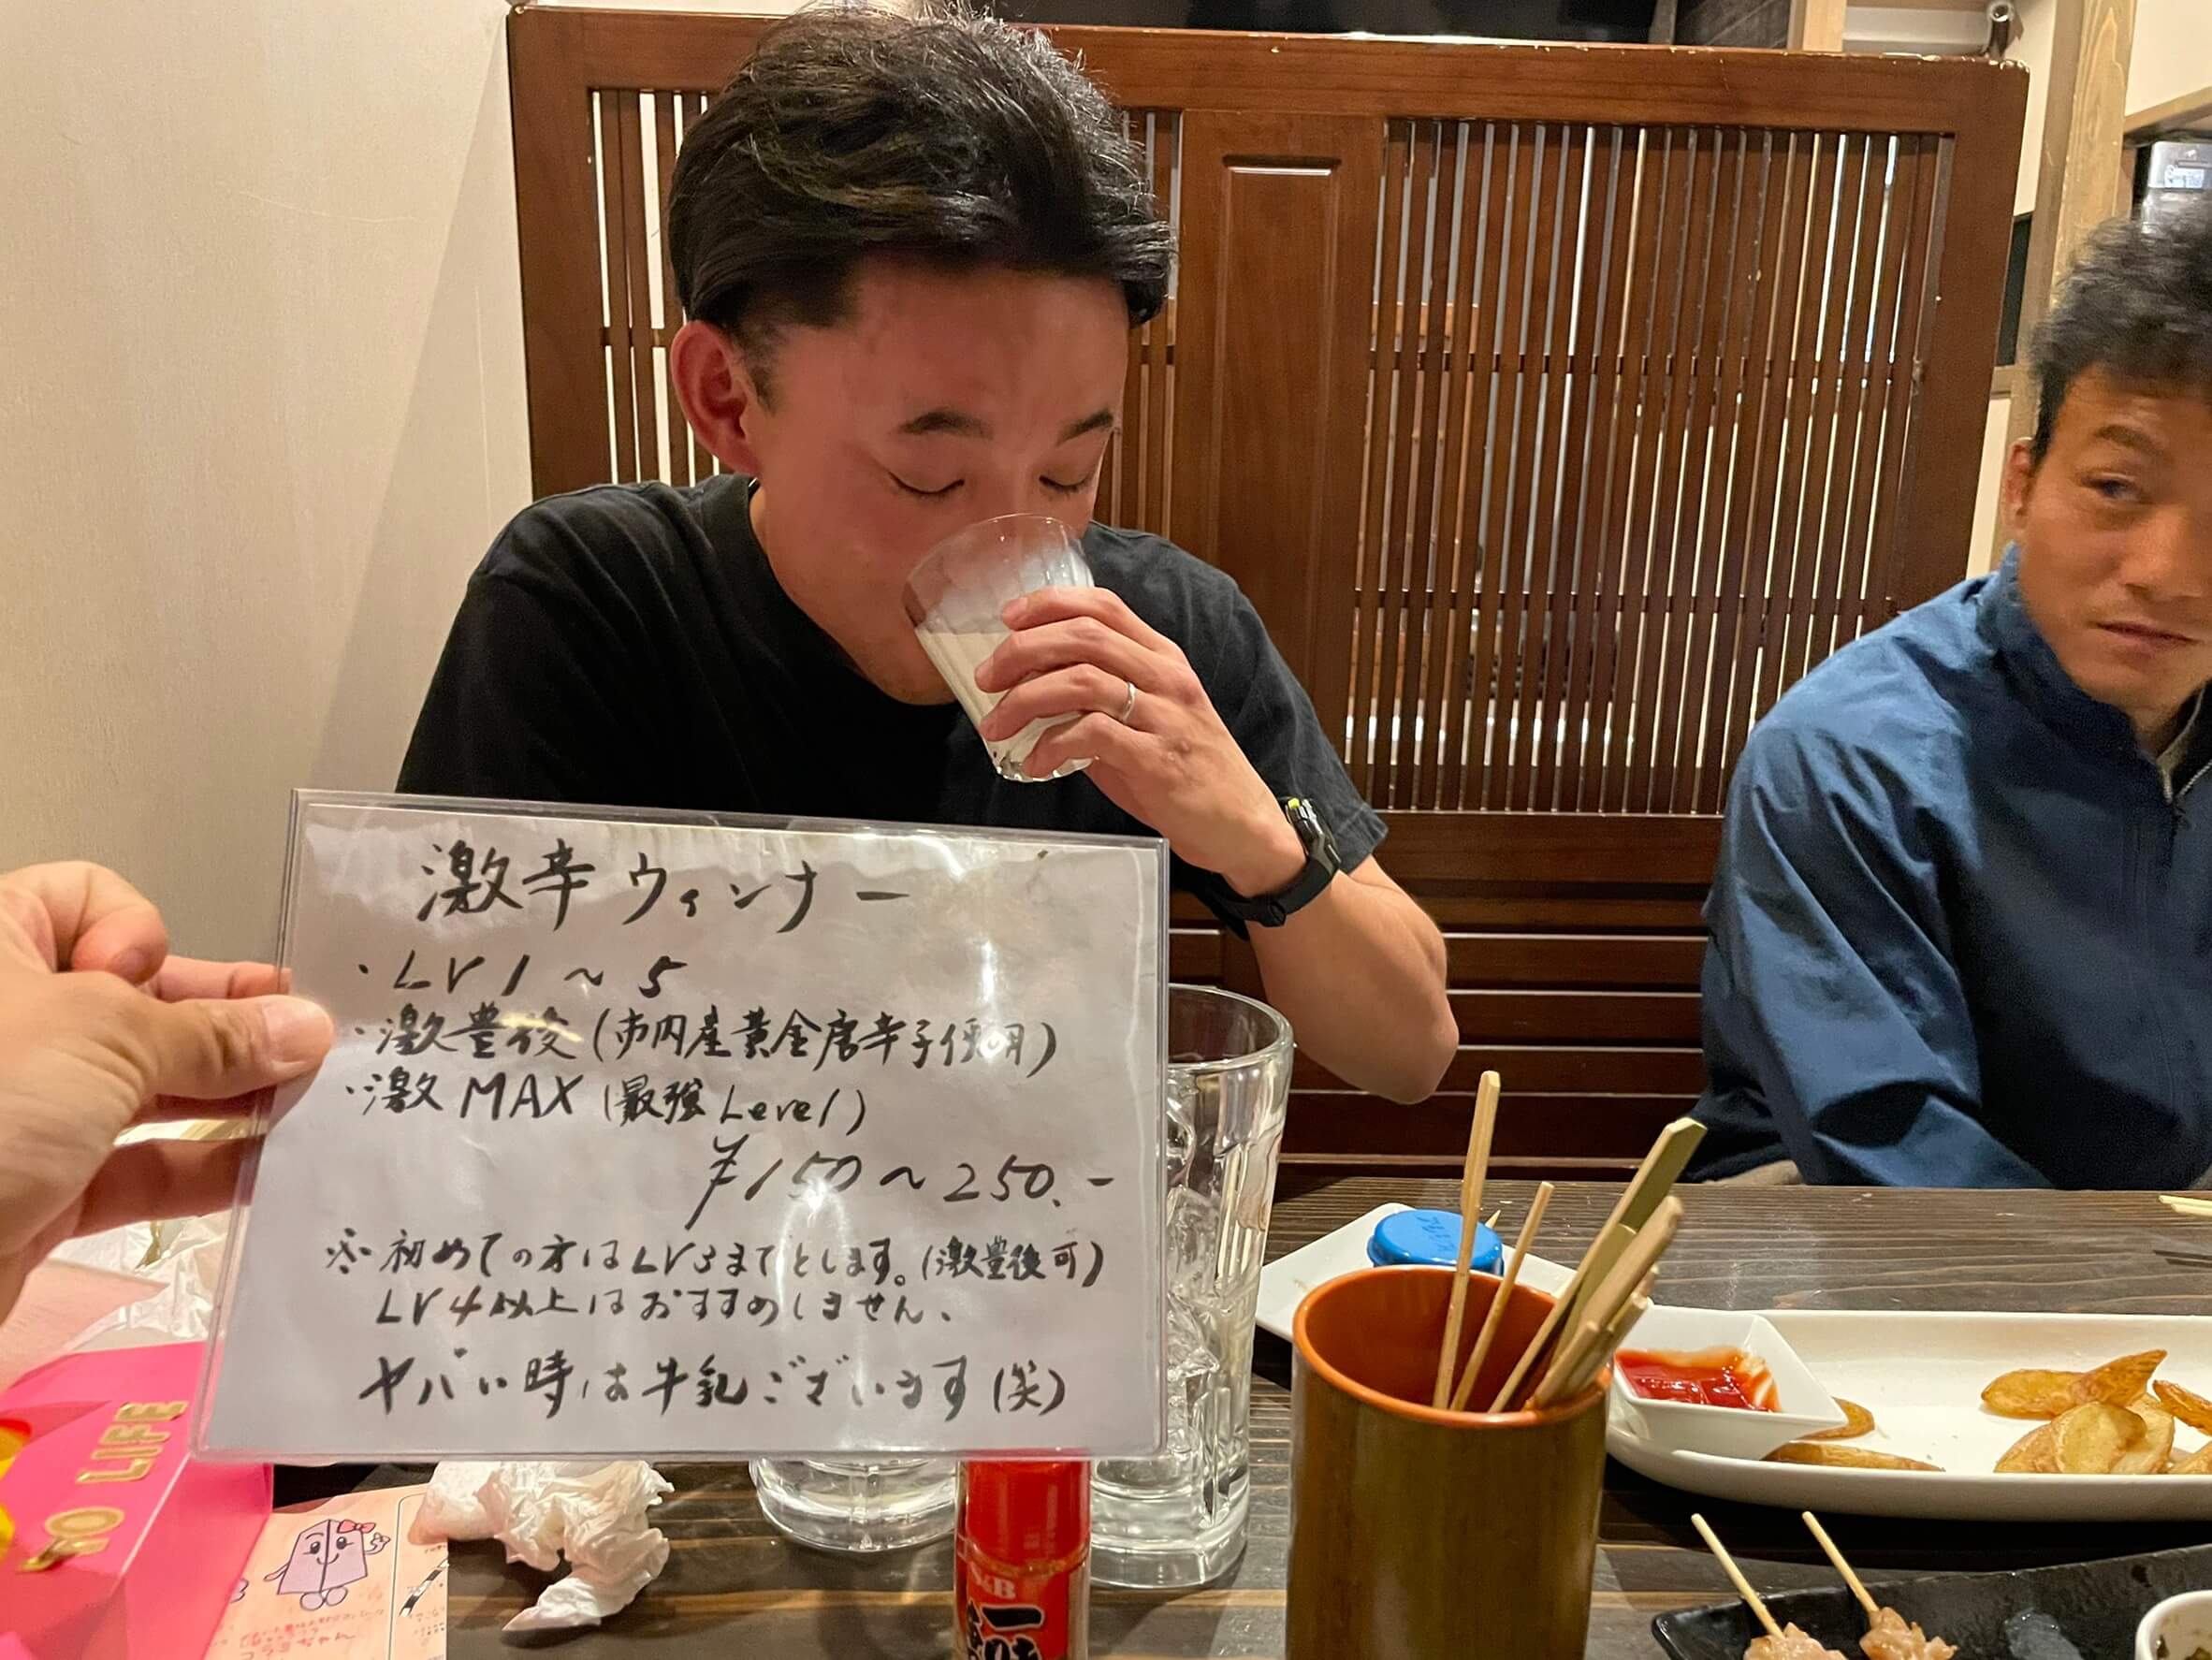 激辛ウィンナー
・LV1～5
・激豊後(市内産黄金唐辛子使用)
・激MAX(最強Level)
¥150～250.-
※初めての方はLV3までとします。(激豊後可)
LV4以上はおすすめしません、
ヤバい時は牛乳ございます(笑)
TO LIFE
S&B
一味